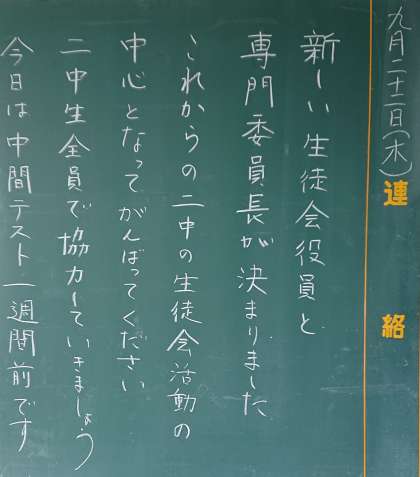 九月二十二日(木)
連絡
新しい生徒会役員と
専門委員長が決まりました
これからの二中の生徒会活動の
中心となってがんばってください
二中生全員で協力していきましょう
今日は中間テスト一週間前です